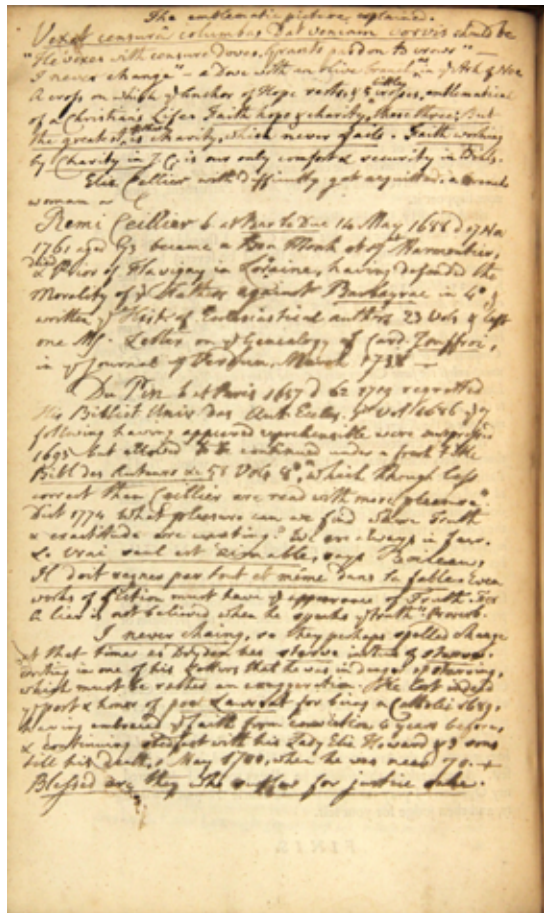 The emblematic picture explained.
Vexat censurâ columbas Dat veniam corvis should be
"He vexes with censure doves, grants pardon to crows" —
I never change" – a dove with an olive branch in yͤ Ark of Noe
A cross on which yͤ Anchor of Hope rests, & 5 little crosses, emblematical
of a Christians Life. Faith hope & charity, these three; But
the greatest is charity, which never fails. Faith working
by Charity in J.C. is our only comfort & security in
Eliz Cellier with difficulty got acquitted, a French
woman
Remi Ceillier b at Bar le Duc 14 May 1688 d 17 No
1761 aged 73 became a Ben Monk
& Prior of Flavigny in Loraine, having defended the
Morality of yͤ Fathers against Barbeyrac in 4º, &
written yͤ Hist of Ecclesiastical authors 23 Vols & left
one Ms. Letter on yͤ Genealogy of Card. Jouffroi,
in yͤ Journal of Verdun, March 1738 —
Du Pin b at Paris 1657 d 62 1719 regretted
His Biblioth Univ des Auth Eccles. Vol 1686 &
following having appeared reprehensible were suppressed
1693 but allowed to be continued under a fresh Title
Bibl des Auteurs &c 58 Vols 8º, which though less
correct than Ceillier are read with more pleasure"
Dict 1774. What pleasure can we find where Truth
& exactitude are wanting? We are always in fear.
Le vrai seul est aimable, says Boileau,
Il doit regner par tout et même dans la fable. Even
works of fiction must have yͤ appearance of Truth. For
A liar is not believed when he speaks yͤ truth" Proverb.
I never chaing, so they perhaps spelled change
at that time as Dryden has sterve instead of starve.
writing in one of his Letters that he was in danger of starving,
which must be rather an exaggeration. He lost indeed
yͤ post & honor of poet Laureat for being a Catholic 1689,
having embraced yͤ faith from conviction 4 years before,
& continuing stedfast with his Lady Eliz Howard & 3 sons
till his death, May 1700, when he was near 70. —
Blessed are they who suffer for justice sake.